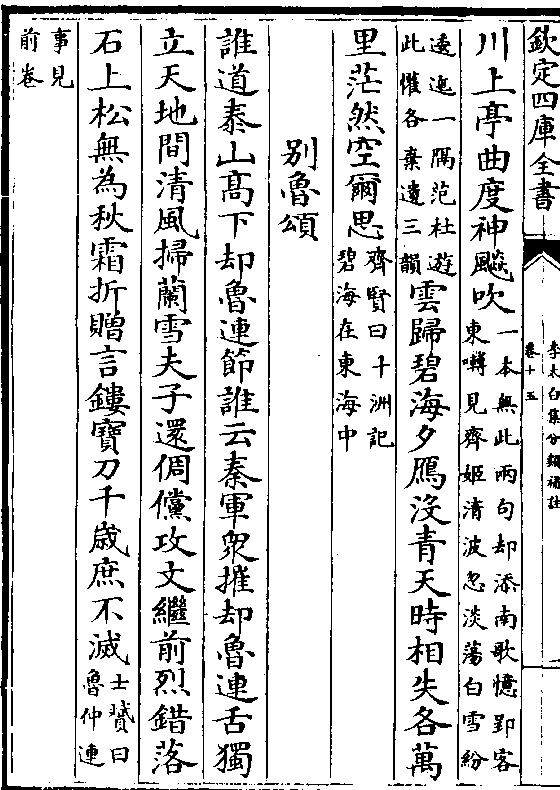 欽定四庫全書
李太白集分類補註
卷十五
川上亭曲度神飈吹一本無此兩句却添南歌憶郢客東囀見齊姬清波忽淡蕩白雪紛
逶迤一隅范杜遊此懽各棄遺三韻雲歸碧海夕鴈沒青天時相失各萬
里茫然空爾思齊賢曰十洲記碧海在東海中
別魯頌
誰道泰山髙下却魯連節誰云秦軍衆摧却魯連舌獨
立天地間清風掃蘭雪夫子還倜儻攻文繼前烈錯落
石上松無為秋霜折贈言鏤寶刀千歲庶不滅士贇曰魯仲連
事見前卷